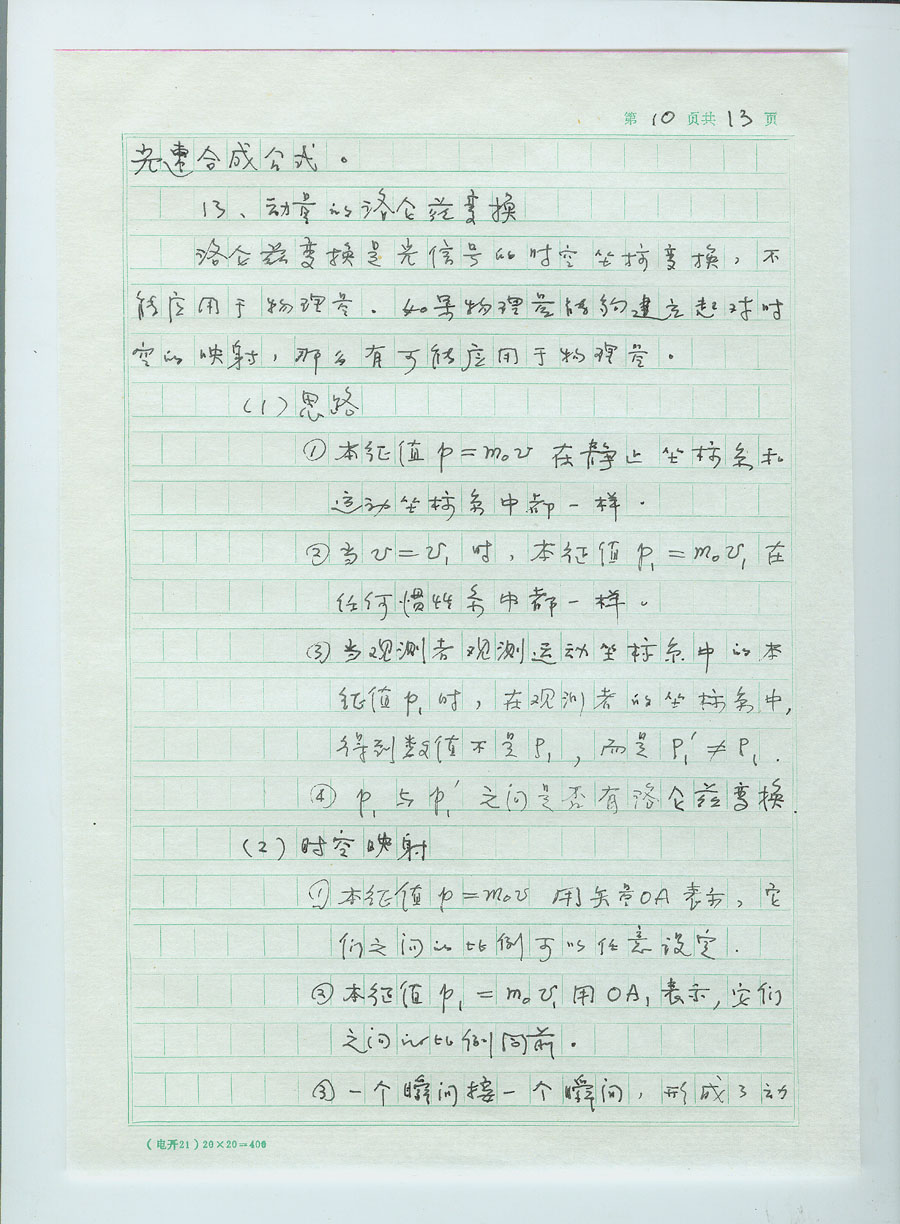 第 10 页共 13 页
光速合成公式。
13、动量的洛仑兹变换
洛仑兹变换是光信号的时空坐标变换，不
能应用于物理量．如果物理量能够建立起对时
空的映射，那么有可能应用于物理量。
(1)思路
①本征值 p=m₀v 在静止坐标系和
运动坐标系中都一样．
②当 v=v₁ 时，本征值 p₁=m₀v₁ 在
任何惯性系中都一样。
③当观测者观测运动坐标系中的本
征值 p₁ 时，在观测者的坐标系中，
得到数值不是 p₁，而是 p₁′≠p₁．
④ p₁ 与 p₁′ 之间是否有洛仑兹变换．
(2)时空映射
①本征值 p=m₀v 用矢量OA表示，它
们之间的比例可以任意设定．
②本征值 p₁=m₀v₁ 用 OA₁ 表示，它们
之间的比例同前。
③一个瞬间接一个瞬间，形成了动
(电开21)20×20=400